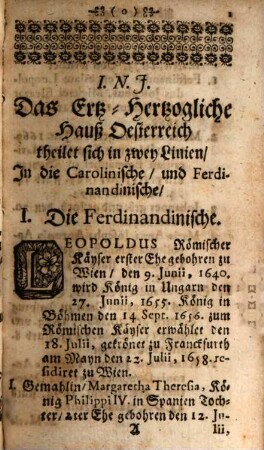 ( o )
I. N. J.
Das Ertz-Hertzogliche
Hauß Oesterreich
theilet sich in zwey Linien/
In die Carolinische/ und Ferdi-
nandinische/
I. Die Ferdinandinische.
LEOPOLDUS Römischer
Käyser erster Ehe gebohren zu
Wien/ den 9. Junii, 1640.
wird König in Ungarn den
27. Junii, 1655. König in
Böhmen den 14. Sept. 1656. zum
Römischen Käyser erwählet den
18. Julii, gekrönet zu Franckfurth
am Mayn den 22. Julii, 1658. re-
sidiret zu Wien.
I. Gemahlin/ Margaretha Theresia, Kö-
nig Philippi IV. in Spanien Toch-
ter/ 2ter Ehe gebohren den 12. Ju-
A lii,